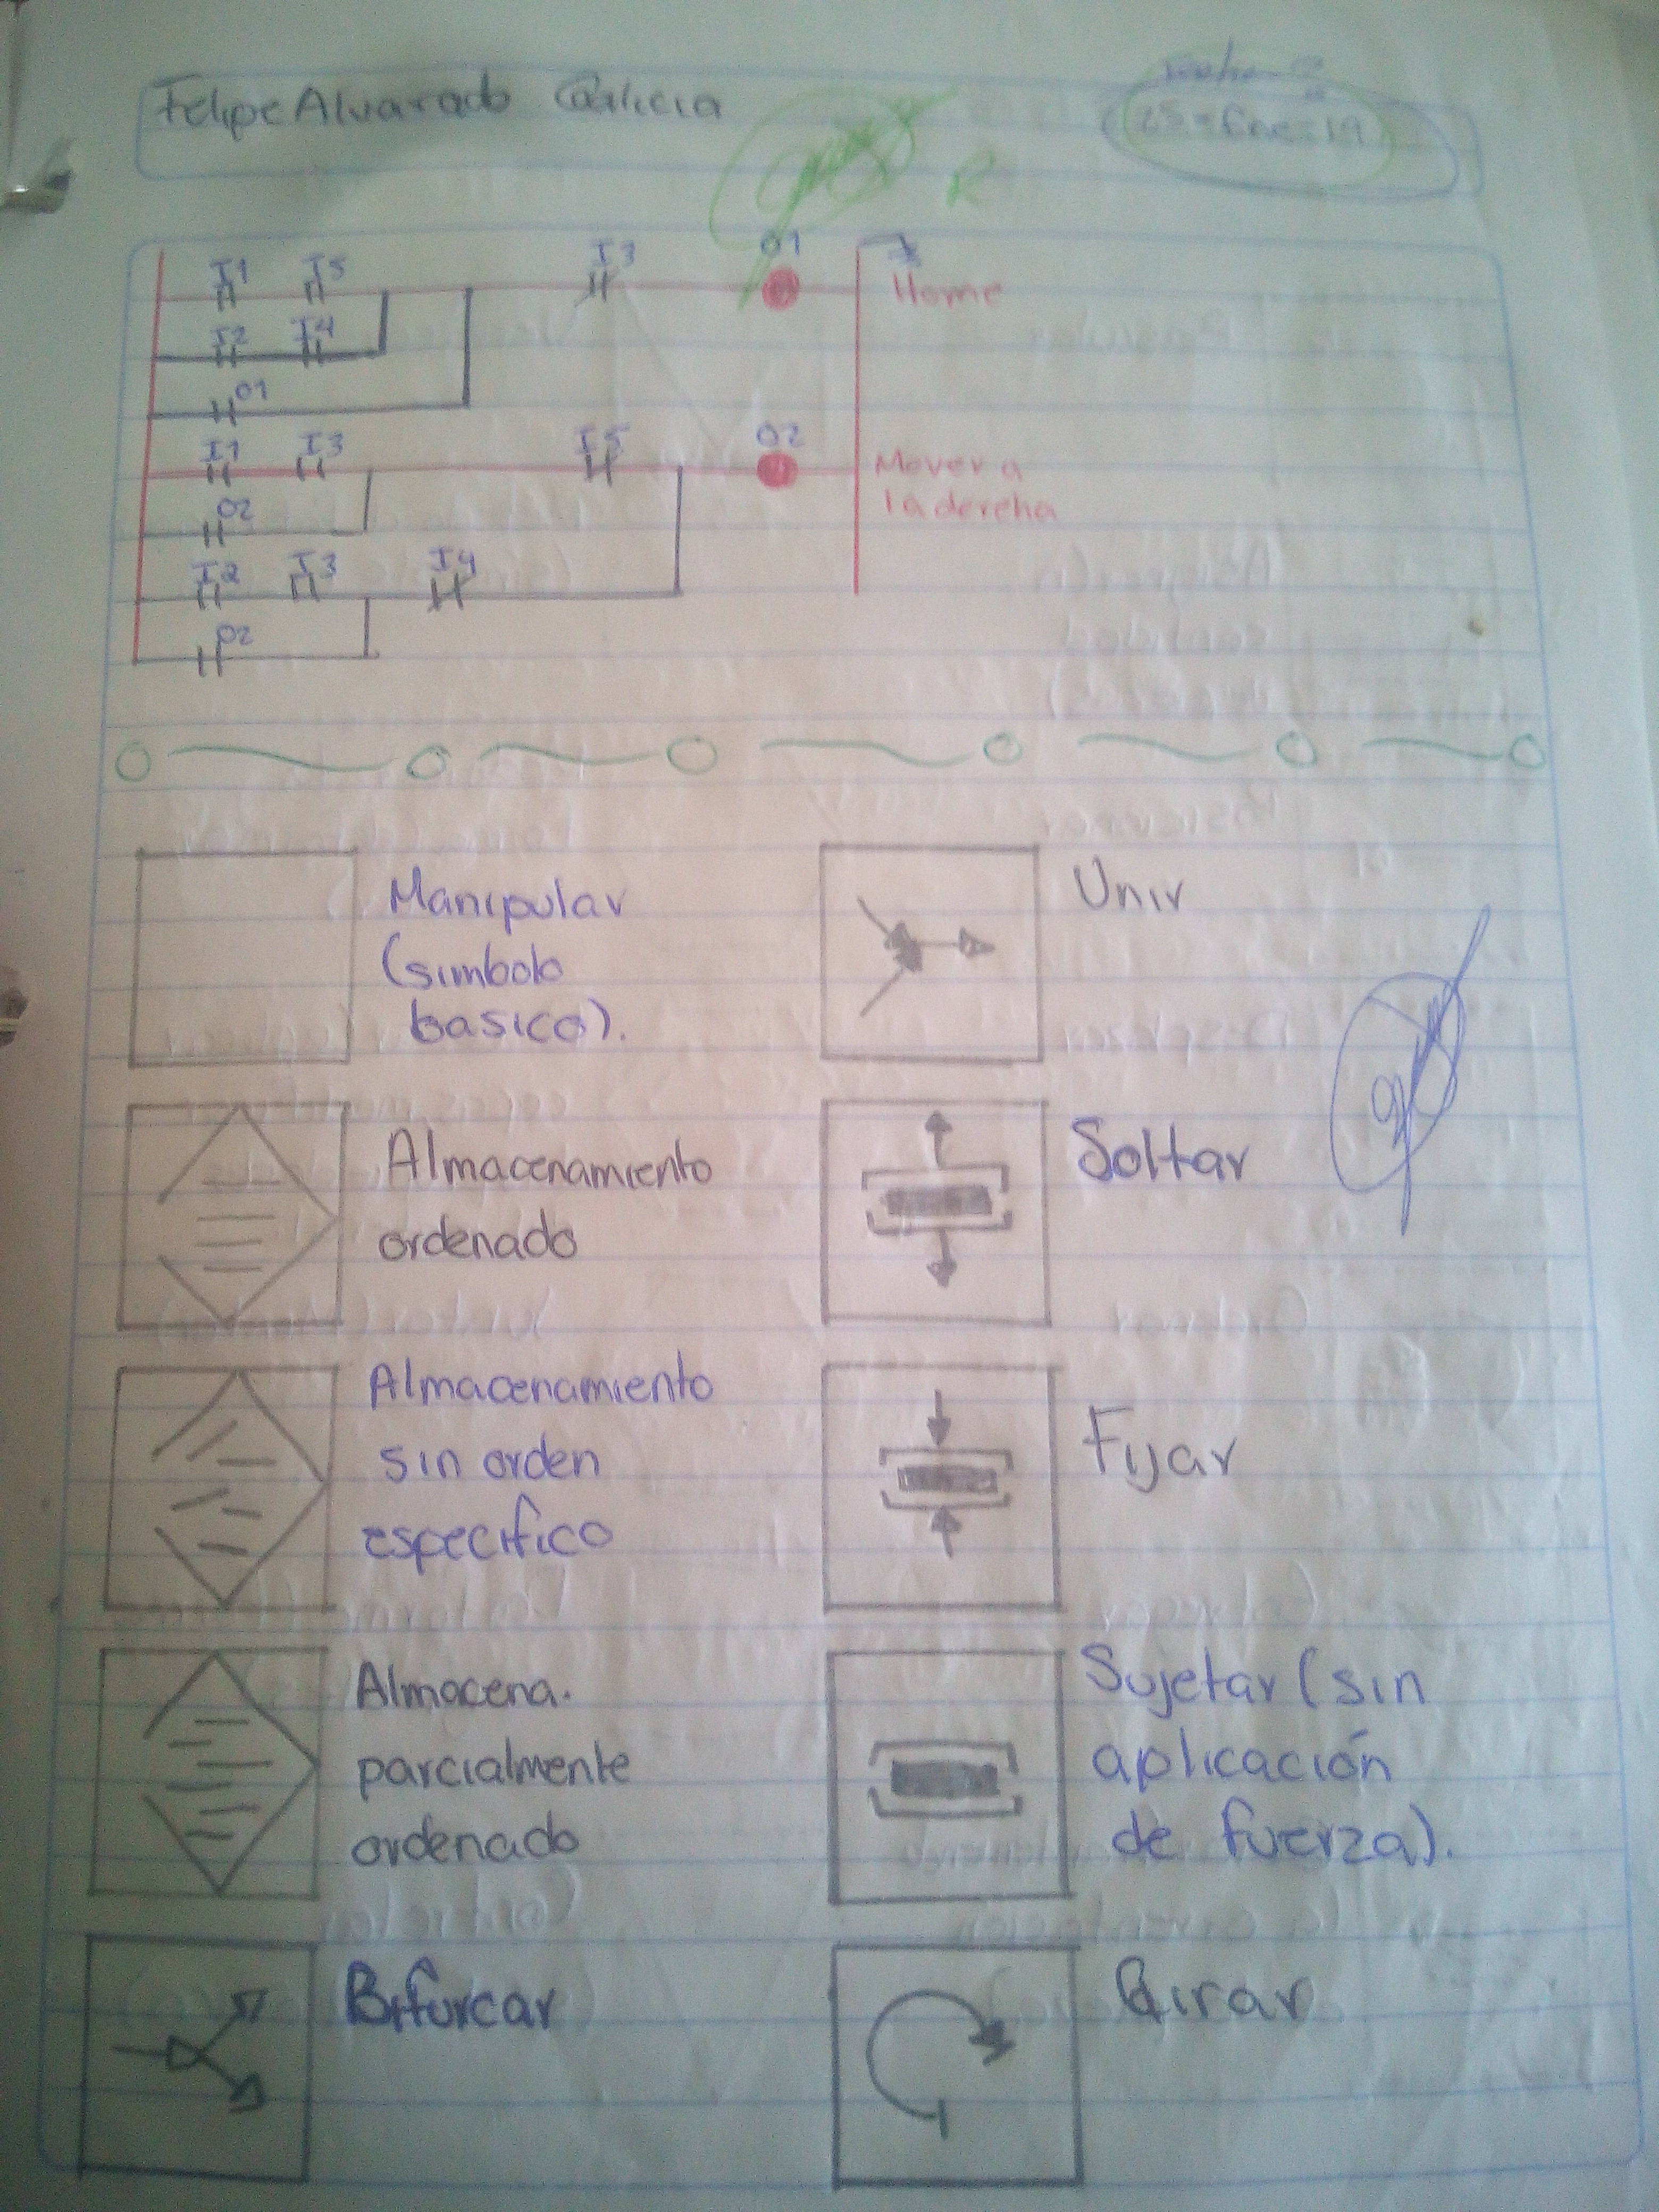 Felipe Alvarado Galicia
25-Ene-19
R
I1 I5 I3 O1
Home
I2 I4
O1
I1 I3 I5 O2
Mover a
la derecha
O2
I2 I3 I4
O2
Manipular
(simbolo
basico).
Unir
Almacenamiento
ordenado
Soltar
Almacenamiento
sin orden
especifico
Fijar
Almacena.
parcialmente
ordenado
Sujetar (sin
aplicación
de fuerza).
Bifurcar
Girar